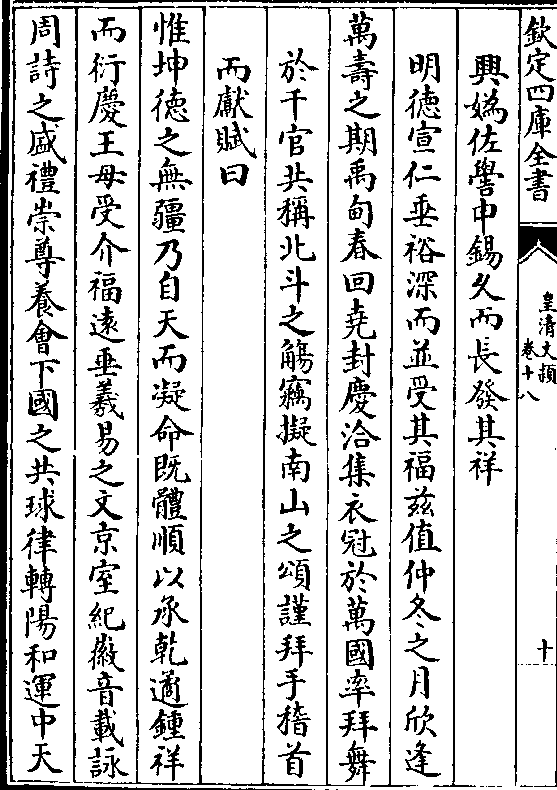 欽定四庫全書
皇清文穎
卷十八
十
興媯佐嚳申錫久而長發其祥
明德宣仁垂裕深而並受其福茲值仲冬之月欣逢
萬壽之期禹甸春回堯封慶洽集衣冠於萬國率拜舞
於千官共稱北斗之觴竊擬南山之頌謹拜手稽首
而獻賦曰
惟坤德之無疆乃自天而凝命既體順以承乾適鍾祥
而衍慶王母受介福遠垂羲易之文京室紀徽音載詠
周詩之盛禮崇尊養會下國之共球律轉陽和運中天